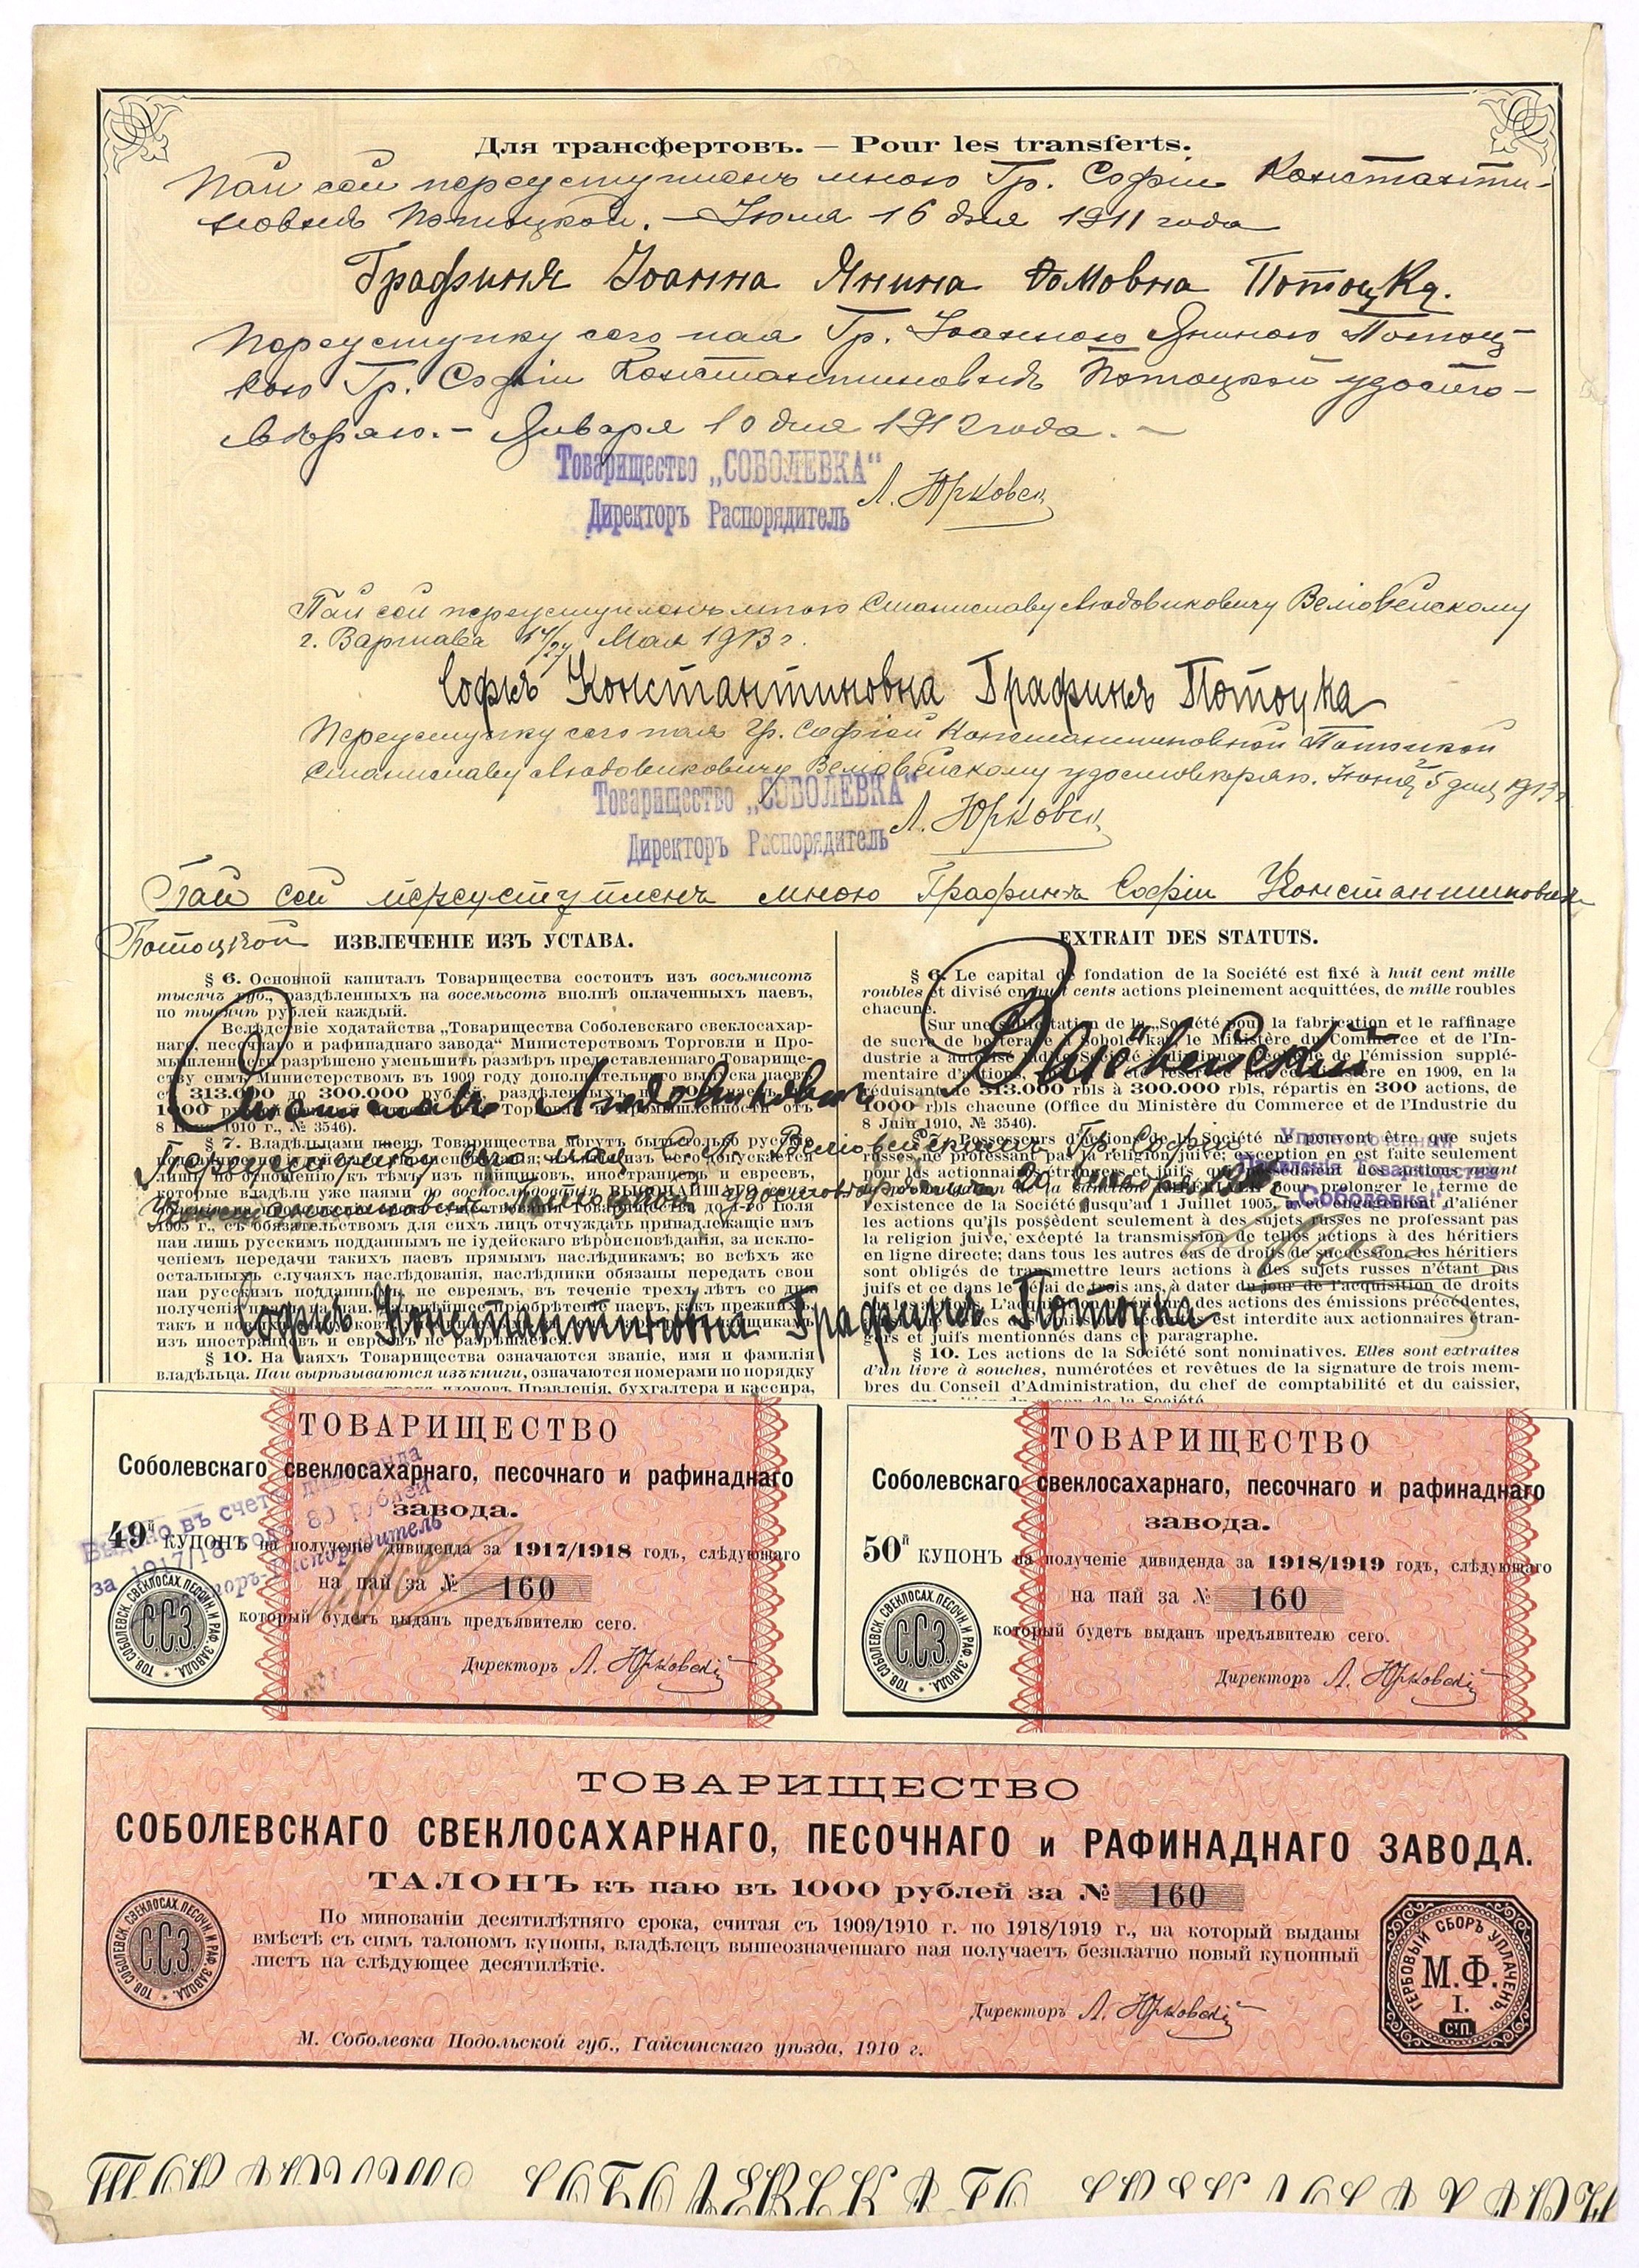 Для трансфертовъ. — Pour les transferts.
Пай сей переуступленъ мною Гр. Софіи Константи-
новнѣ Потоцкой. — Іюля 16 дня 1911 года
Графиня Іоанна Янина Потоцка.
Переуступку сего пая Гр. Іоанною Яниною Потоц-
кою Гр. Софіи Константиновнѣ Потоцкой удосто-
вѣряю. — Января 10 дня 1912 года. —
Товарищество „СОБОЛЕВКА“
Директоръ Распорядитель
Л. Юрковскі
Пай сей переуступленъ мною Станиславу Людвиковичу
г. Варшава Мая 1913 г.
Софія Константиновна Графиня Потоцка
Переуступку сего пая Гр. Софіей Константиновной Потоцкой
Станиславу Людвиковичу удостовѣряю. Іюня 5 дня 1913 г.
Товарищество „СОБОЛЕВКА“
Директоръ Распорядитель
Л. Юрковскі
Пай сей переуступленъ мною Графинѣ Софіи Константиновнѣ
Потоцкой
ИЗВЛЕЧЕНІЕ ИЗЪ УСТАВА.
§ 6. Основной капиталъ Товарищества состоитъ изъ восьмисотъ
тысячъ руб., раздѣленныхъ на восемьсотъ вполнѣ оплаченныхъ паевъ,
по тысячѣ рублей каждый.
Вслѣдствіе ходатайства „Товарищества Соболевскаго свеклосахар-
наго, песочнаго и рафинаднаго завода“ Министерствомъ Торговли и Про-
мышленности разрѣшено уменьшить размѣръ предоставленнаго Товарище-
ству симъ Министерствомъ въ 1909 году дополнительнаго выпуска паевъ
съ 313.000 до 300.000 рублей, раздѣленныхъ
1000 Торговли и Промышленности отъ
8 Іюня 1910 г., № 3546).
§ 7. Владѣльцами паевъ Товарищества могутъ быть только русскіе
лишь по отношенію къ тѣмъ изъ пайщиковъ, иностранцевъ и евреевъ,
которые владѣли уже паями до воспослѣдованія ВЫСОЧАЙШАГО
Товарищества до 1-го Іюля
1905 г., съ обязательствомъ для сихъ лицъ отчуждать принадлежащіе имъ
паи лишь русскимъ подданнымъ не іудейскаго вѣроисповѣданія, за исклю-
ченіемъ передачи такихъ паевъ прямымъ наслѣдникамъ; во всѣхъ же
остальныхъ случаяхъ наслѣдованія, наслѣдники обязаны передать свои
паи русскимъ подданнымъ, не евреямъ, въ теченіе трехъ лѣтъ со дня
полученія правъ на паи. Дальнѣйшее пріобрѣтеніе паевъ, какъ прежнихъ,
такъ и новыхъ
изъ иностранцевъ и евреевъ не разрѣшается.
§ 10. На паяхъ Товарищества означаются званіе, имя и фамилія
владѣльца. Паи вырѣзываются изъ книги, означаются номерами по порядку
членовъ Правленія, бухгалтера и кассира,
EXTRAIT DES STATUTS.
§ 6. Le capital de fondation de la Société est fixé à huit cent mille
roubles et divisé en huit cents actions pleinement acquittées, de mille roubles
chacune.
Sur une sollicitation de la „Société pour la fabrication et le raffinage
de sucre de betterave à Sobolevka“, le Ministère du Commerce et de l'In-
dustrie a autorisé la dite Société à diminuer de l'émission supplé-
mentaire d'actions, en 1909, en la
réduisant de 313.000 rbls à 300.000 rbls, répartis en 300 actions, de
1000 rbls chacune (Office du Ministère du Commerce et de l'Industrie du
8 Juin 1910, № 3546).
§ 7. Possesseurs d'actions de la Société ne peuvent être que sujets
russes ne professant pas la religion juive; exception en est faite seulement
pour les actionnaires étrangers et juifs qui possédaient des actions avant
la sanction IMPÉRIALE pour prolonger le terme de
l'existence de la Société jusqu'au 1 Juillet 1905, avec engagement d'aliéner
les actions qu'ils possèdent seulement à des sujets russes ne professant pas
la religion juive, excépté la transmission de telles actions à des héritiers
en ligne directe; dans tous les autres cas de droits de succession les héritiers
sont obligés de transmettre leurs actions à des sujets russes n'étant pas
juifs et ce dans le délai de trois ans, à dater du jour de l'acquisition de droits
des actions des émissions précédentes,
est interdite aux actionnaires étran-
gers et juifs mentionnés dans ce paragraphe.
§ 10. Les actions de la Société sont nominatives. Elles sont extraites
d'un livre à souches, numérotées et revêtues de la signature de trois mem-
bres du Conseil d'Administration, du chef de comptabilité et du caissier,
Станиславъ Людвиковичъ
Переуступку сего пая
Константиновнѣ Потоцкой удостовѣряю
Уполномоченный
Правленія Товарищества
„Соболевка“
Софія Константиновна Графиня Потоцка
ТОВАРИЩЕСТВО
Соболевскаго свеклосахарнаго, песочнаго и рафинаднаго
завода.
49й КУПОНЪ на полученіе дивиденда за 1917/1918 годъ, слѣдующаго
на пай за № 160
который будетъ выданъ предъявителю сего.
Директоръ Л. Юрковскій
ТОВ. СОБОЛЕВСК. СВЕКЛОСАХ. ПЕСОЧН. И РАФ. ЗАВОДА.
С.С.З.
Выдано въ счетъ дивиденда
за 1917/18 годъ 80 рублей
Директоръ-Распорядитель
ТОВАРИЩЕСТВО
Соболевскаго свеклосахарнаго, песочнаго и рафинаднаго
завода.
50й КУПОНЪ на полученіе дивиденда за 1918/1919 годъ, слѣдующаго
на пай за № 160
который будетъ выданъ предъявителю сего.
Директоръ Л. Юрковскій
ТОВ. СОБОЛЕВСК. СВЕКЛОСАХ. ПЕСОЧН. И РАФ. ЗАВОДА.
С.С.З.
ТОВАРИЩЕСТВО
СОБОЛЕВСКАГО СВЕКЛОСАХАРНАГО, ПЕСОЧНАГО и РАФИНАДНАГО ЗАВОДА.
ТАЛОНЪ къ паю въ 1000 рублей за № 160
По минованіи десятилѣтняго срока, считая съ 1909/1910 г. по 1918/1919 г., на который выданы
вмѣстѣ съ симъ талономъ купоны, владѣлецъ вышеозначеннаго пая получаетъ безплатно новый купонный
листъ на слѣдующее десятилѣтіе.
Директоръ Л. Юрковскій
М. Соболевка Подольской губ., Гайсинскаго уѣзда, 1910 г.
ТОВ. СОБОЛЕВСК. СВЕКЛОСАХ. ПЕСОЧН. И РАФ. ЗАВОДА.
С.С.З.
ГЕРБОВЫЙ СБОРЪ УПЛАЧЕНЪ.
М.Ф.
I.
С.П.